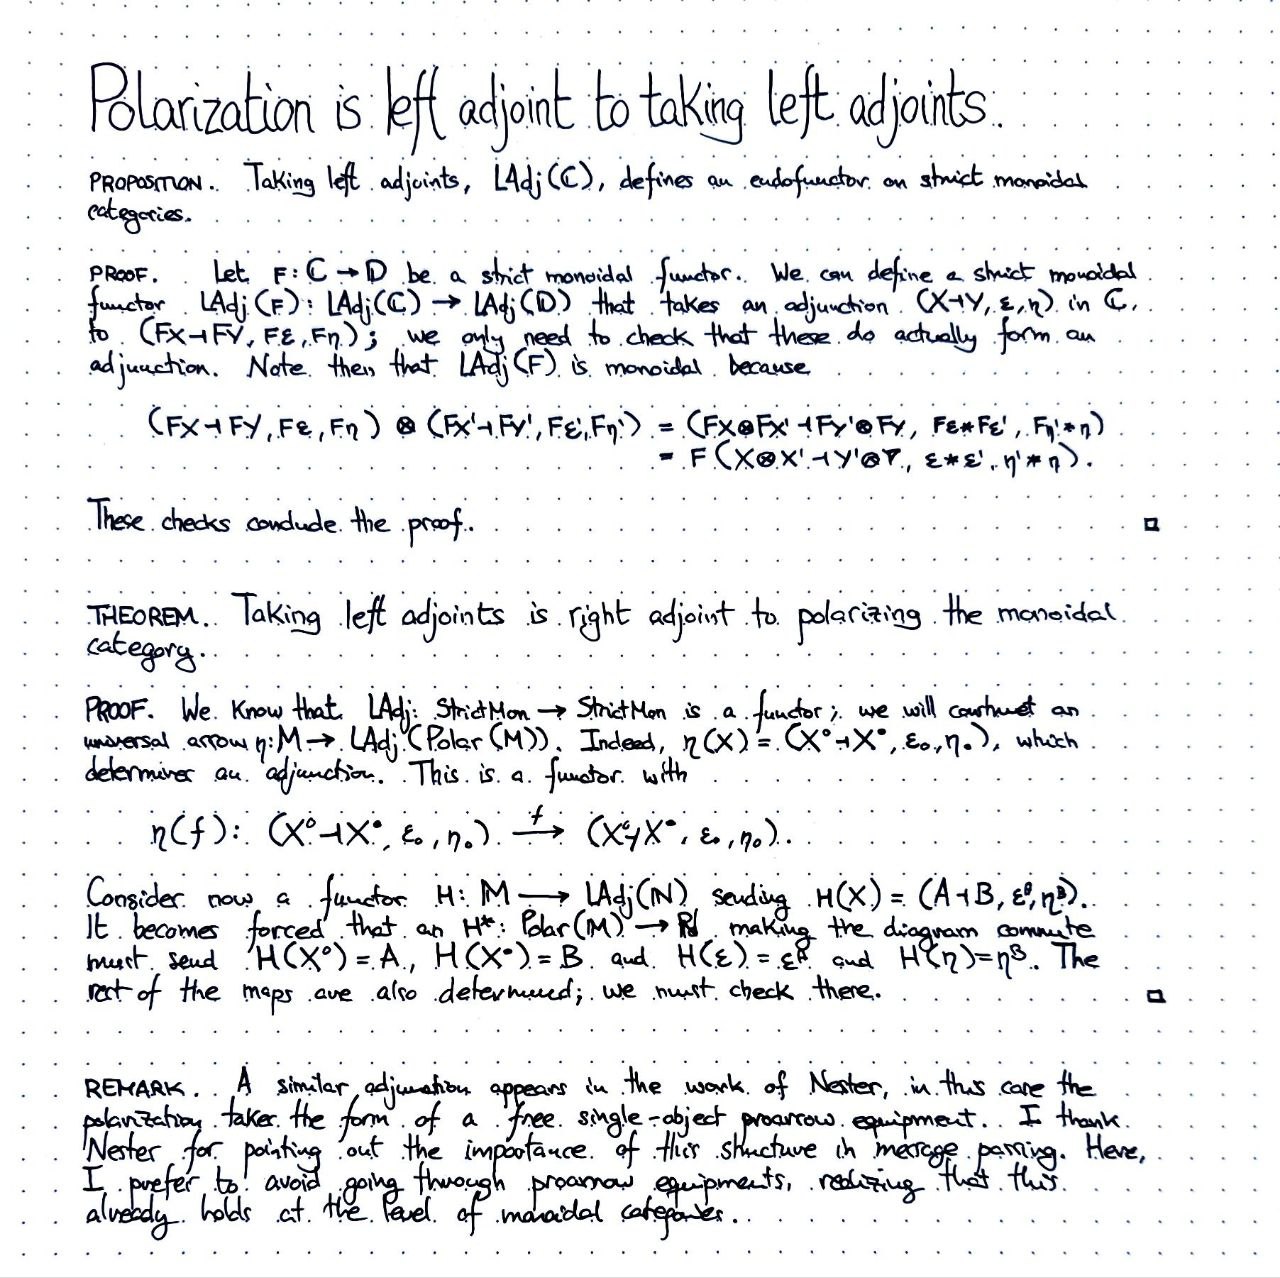 Polarization is left adjoint to taking left adjoints.
PROPOSITION. Taking left adjoints, LAdj(ℂ), defines an endofunctor on strict monoidal
categories.
PROOF. Let F: ℂ → 𝔻 be a strict monoidal functor. We can define a strict monoidal
functor LAdj(F): LAdj(ℂ) → LAdj(𝔻) that takes an adjunction (X⊣Y, ε, η) in ℂ,
to (FX⊣FY, Fε, Fη); we only need to check that these do actually form an
adjunction. Note then that LAdj(F) is monoidal because
(FX⊣FY, Fε, Fη) ⊗ (FX'⊣FY', Fε', Fη') = (FX⊗FX'⊣FY'⊗FY, Fε*Fε', Fη'*η)
= F(X⊗X'⊣Y'⊗Y, ε*ε', η'*η).
These checks conclude the proof. □
THEOREM. Taking left adjoints is right adjoint to polarizing the monoidal
category.
PROOF. We know that LAdj: StrictMon → StrictMon is a functor; we will construct an
universal arrow η: 𝕄 → LAdj(Polar(𝕄)). Indeed, η(X) = (X°⊣X•, ε₀, η₀), which
determines an adjunction. This is a functor with
η(f): (X°⊣X•, ε₀, η₀) →^f (X°⊣Y•, ε₀, η₀).
Consider now a functor H: 𝕄 → LAdj(ℕ) sending H(X) = (A⊣B, εᴮ, ηᴮ).
It becomes forced that an H*: Polar(𝕄) → ℕ making the diagram commute
must send H(X°) = A, H(X•) = B and H(ε) = εᴬ and H(η) = ηᴮ. The
rest of the maps are also determined; we must check there. □
REMARK. A similar adjunction appears in the work of Nester, in this case the
polarization takes the form of a free single-object proarrow equipment. I thank
Nester for pointing out the importance of this structure in message passing. Here,
I prefer to avoid going through proarrow equipments, realizing that this
already holds at the level of monoidal categories.